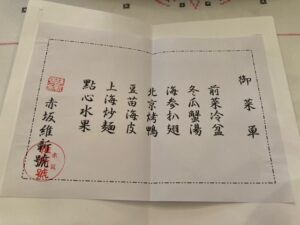 御菜單
前菜冷盆
冬瓜蟹湯
海參扒翅
北京烤鴨
豆苗海皮
上海炒麵
點心水果
赤坂維新號